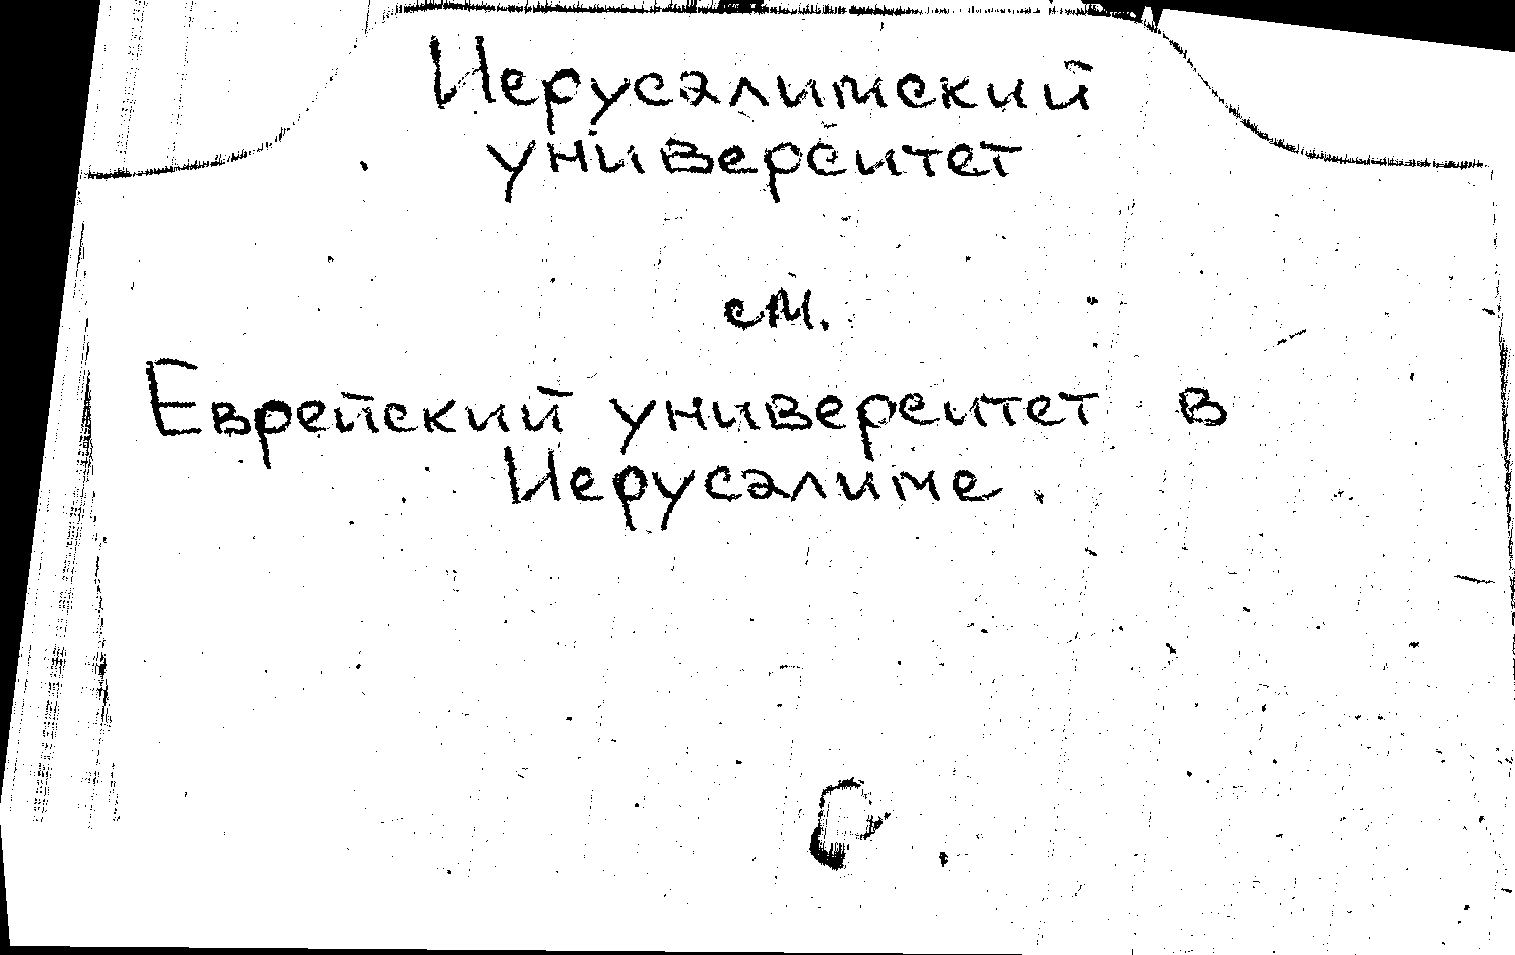 Иерусалимский
университет
см.
Еврейский университет в
Иерусалиме.